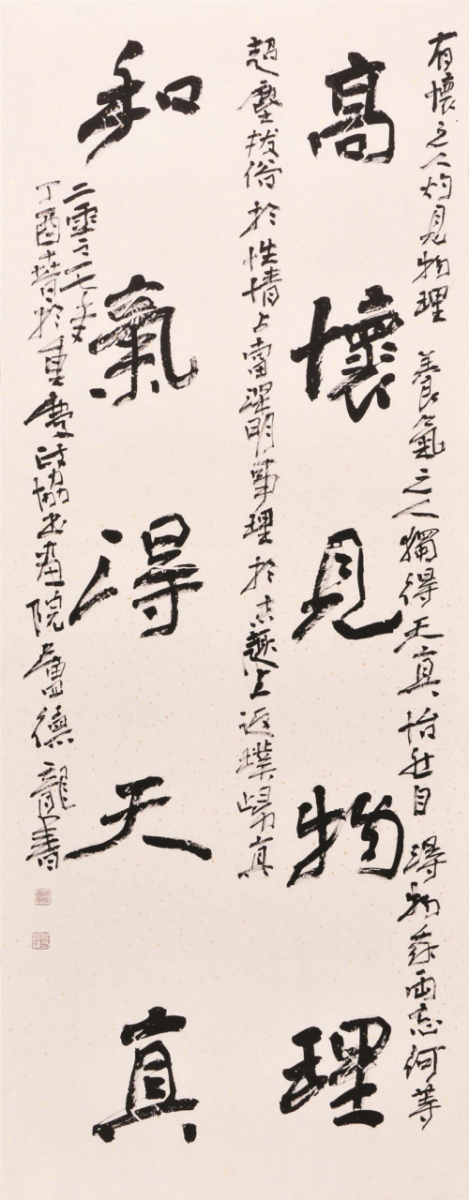 有懷之人灼見物理 養氣之人獨得天真 怡然自得物我兩忘何等
高懷見物理
超塵拔俗於性情上當涵明事理於志趣上返璞歸真
和氣得天真
二零一七年
丁酉春於重慶政協書畫院盧德龍書